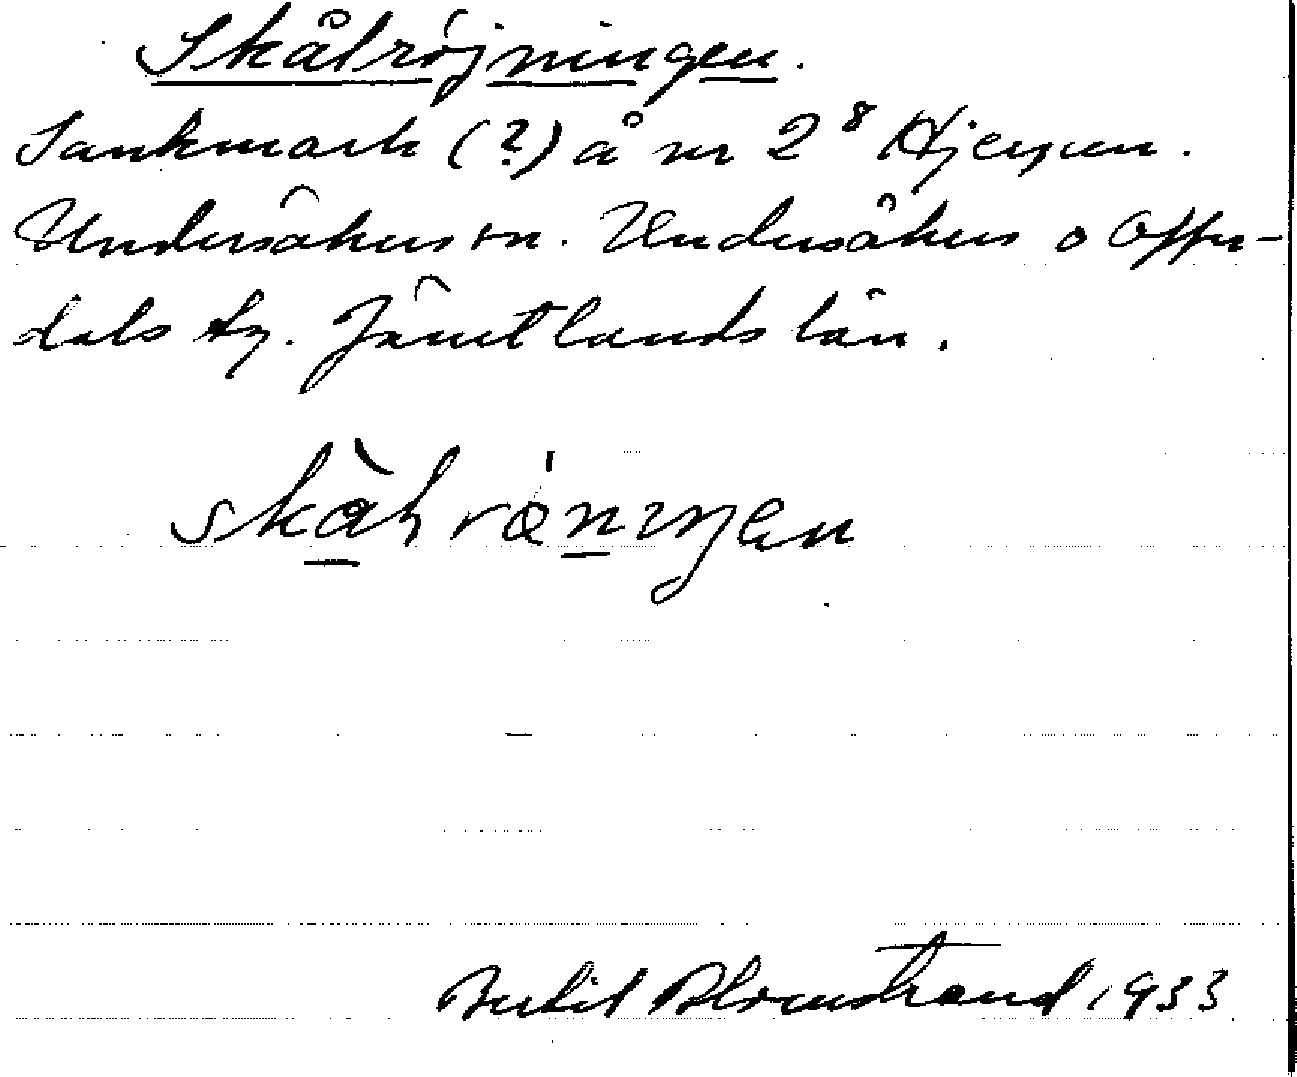 Skålröjningen.
Sankmark (?) å nr 2⁸ Hjerpen.
Undersåkers sn. Undersåkers o Offer-
dals tg. Jämtlands län.
Bertil Blomstrand 1933